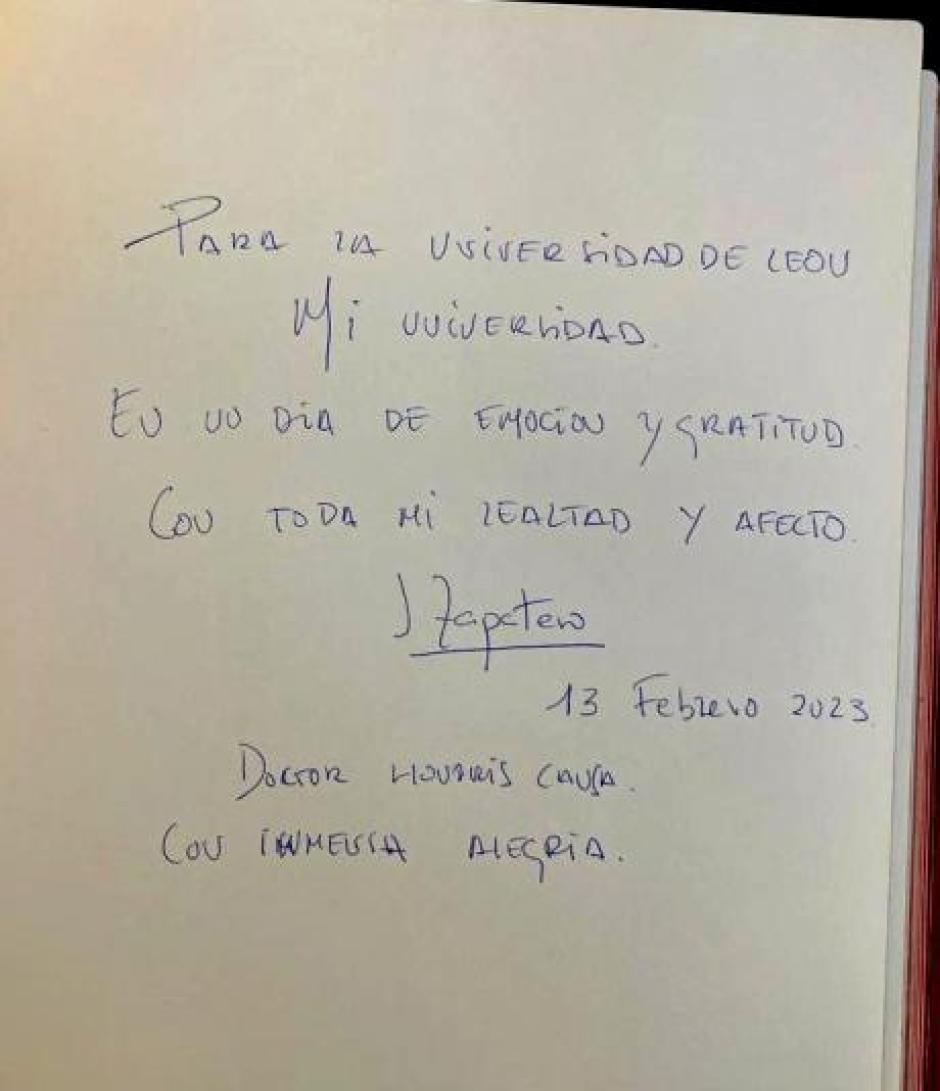 PARA LA UNIVERSIDAD DE LEON
Mi UNIVERSIDAD.
EN UN DIA DE EMOCION Y GRATITUD.
CON TODA MI LEALTAD Y AFECTO.
J Zapatero
13 Febrero 2023
DOCTOR HONORIS CAUSA.
CON INMENSA ALEGRIA.